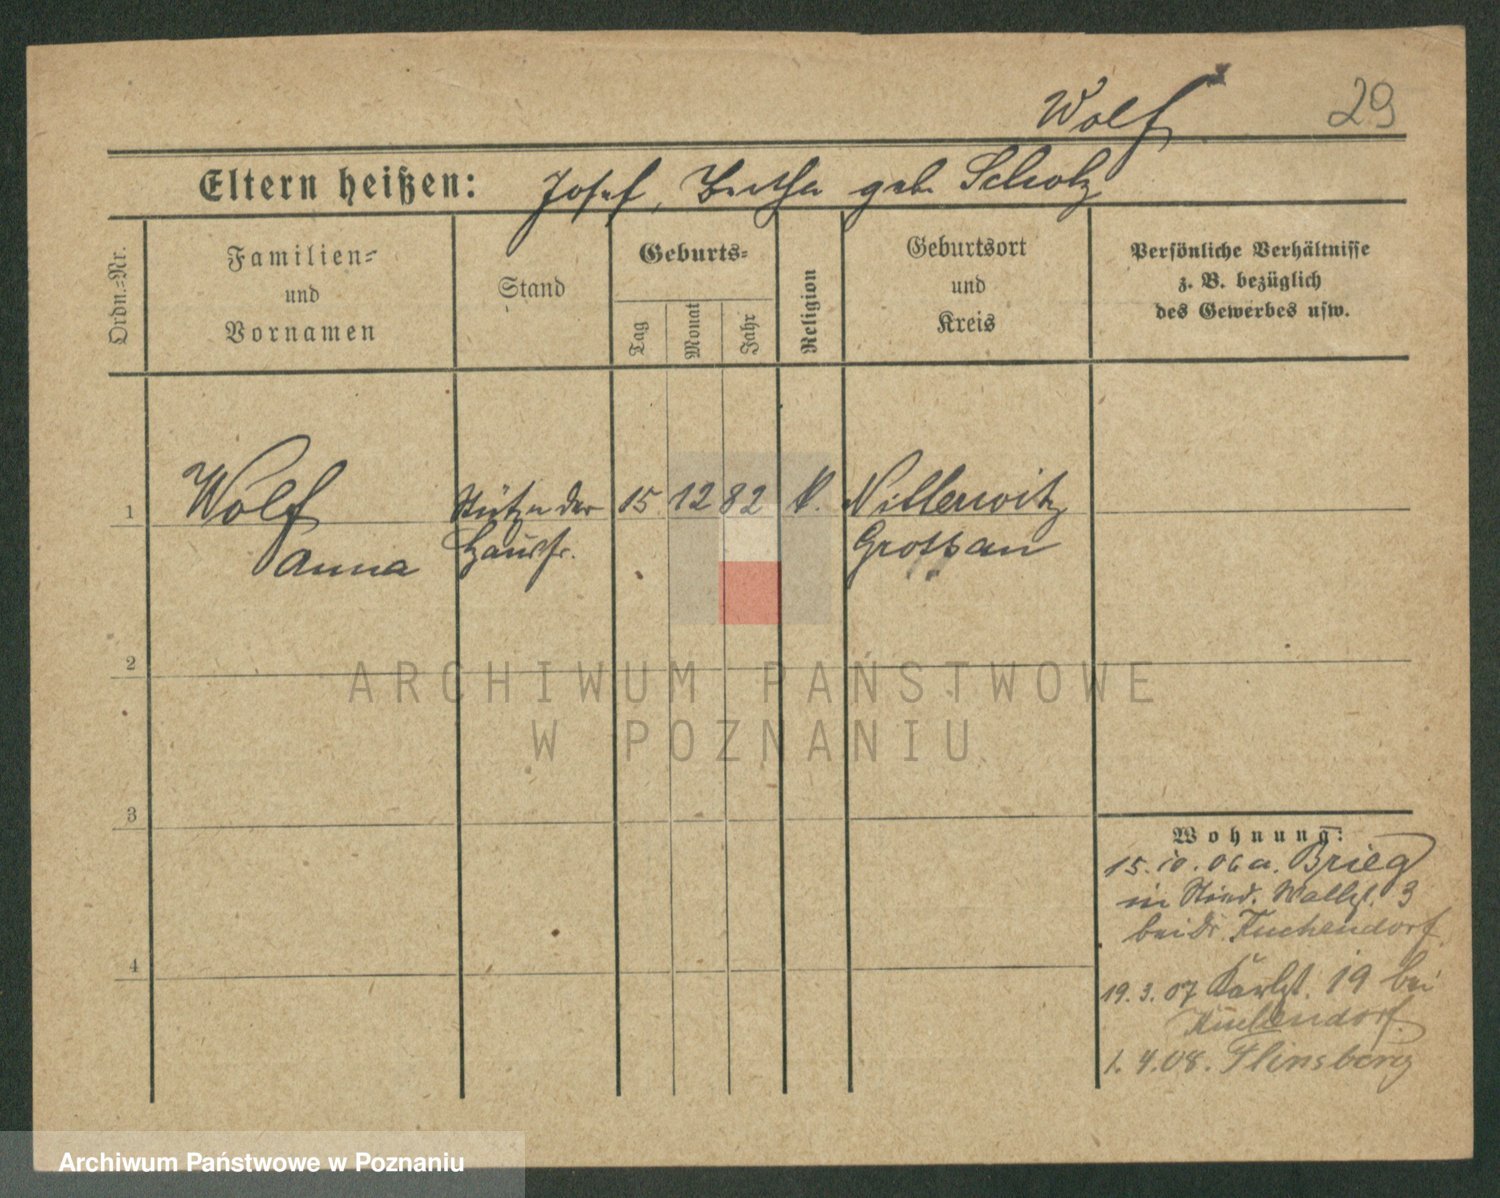 Wolf
29
Eltern heißen: Josef, Bertha geb. Scholz
Ordn.=Nr.
Familien=
und
Vornamen
Stand
Geburts=
Tag
Monat
Jahr
Religion
Geburtsort
und
Kreis
Persönliche Verhältnisse
z. B. bezüglich
des Gewerbes usw.
1
Wolf
Anna
Stütze der
Hausfr.
15 12 82
k.
Nitterwitz
Grottkau
2
3
4
Wohnung:
15.10.06 a. Brieg
in Wallst. 3
bei Kuchendorf
19.3.07 Karlst. 19 bei
Kuchendorf.
1.4.08. Flinsberg
ARCHIWUM PAŃSTWOWE
W POZNANIU
Archiwum Państwowe w Poznaniu